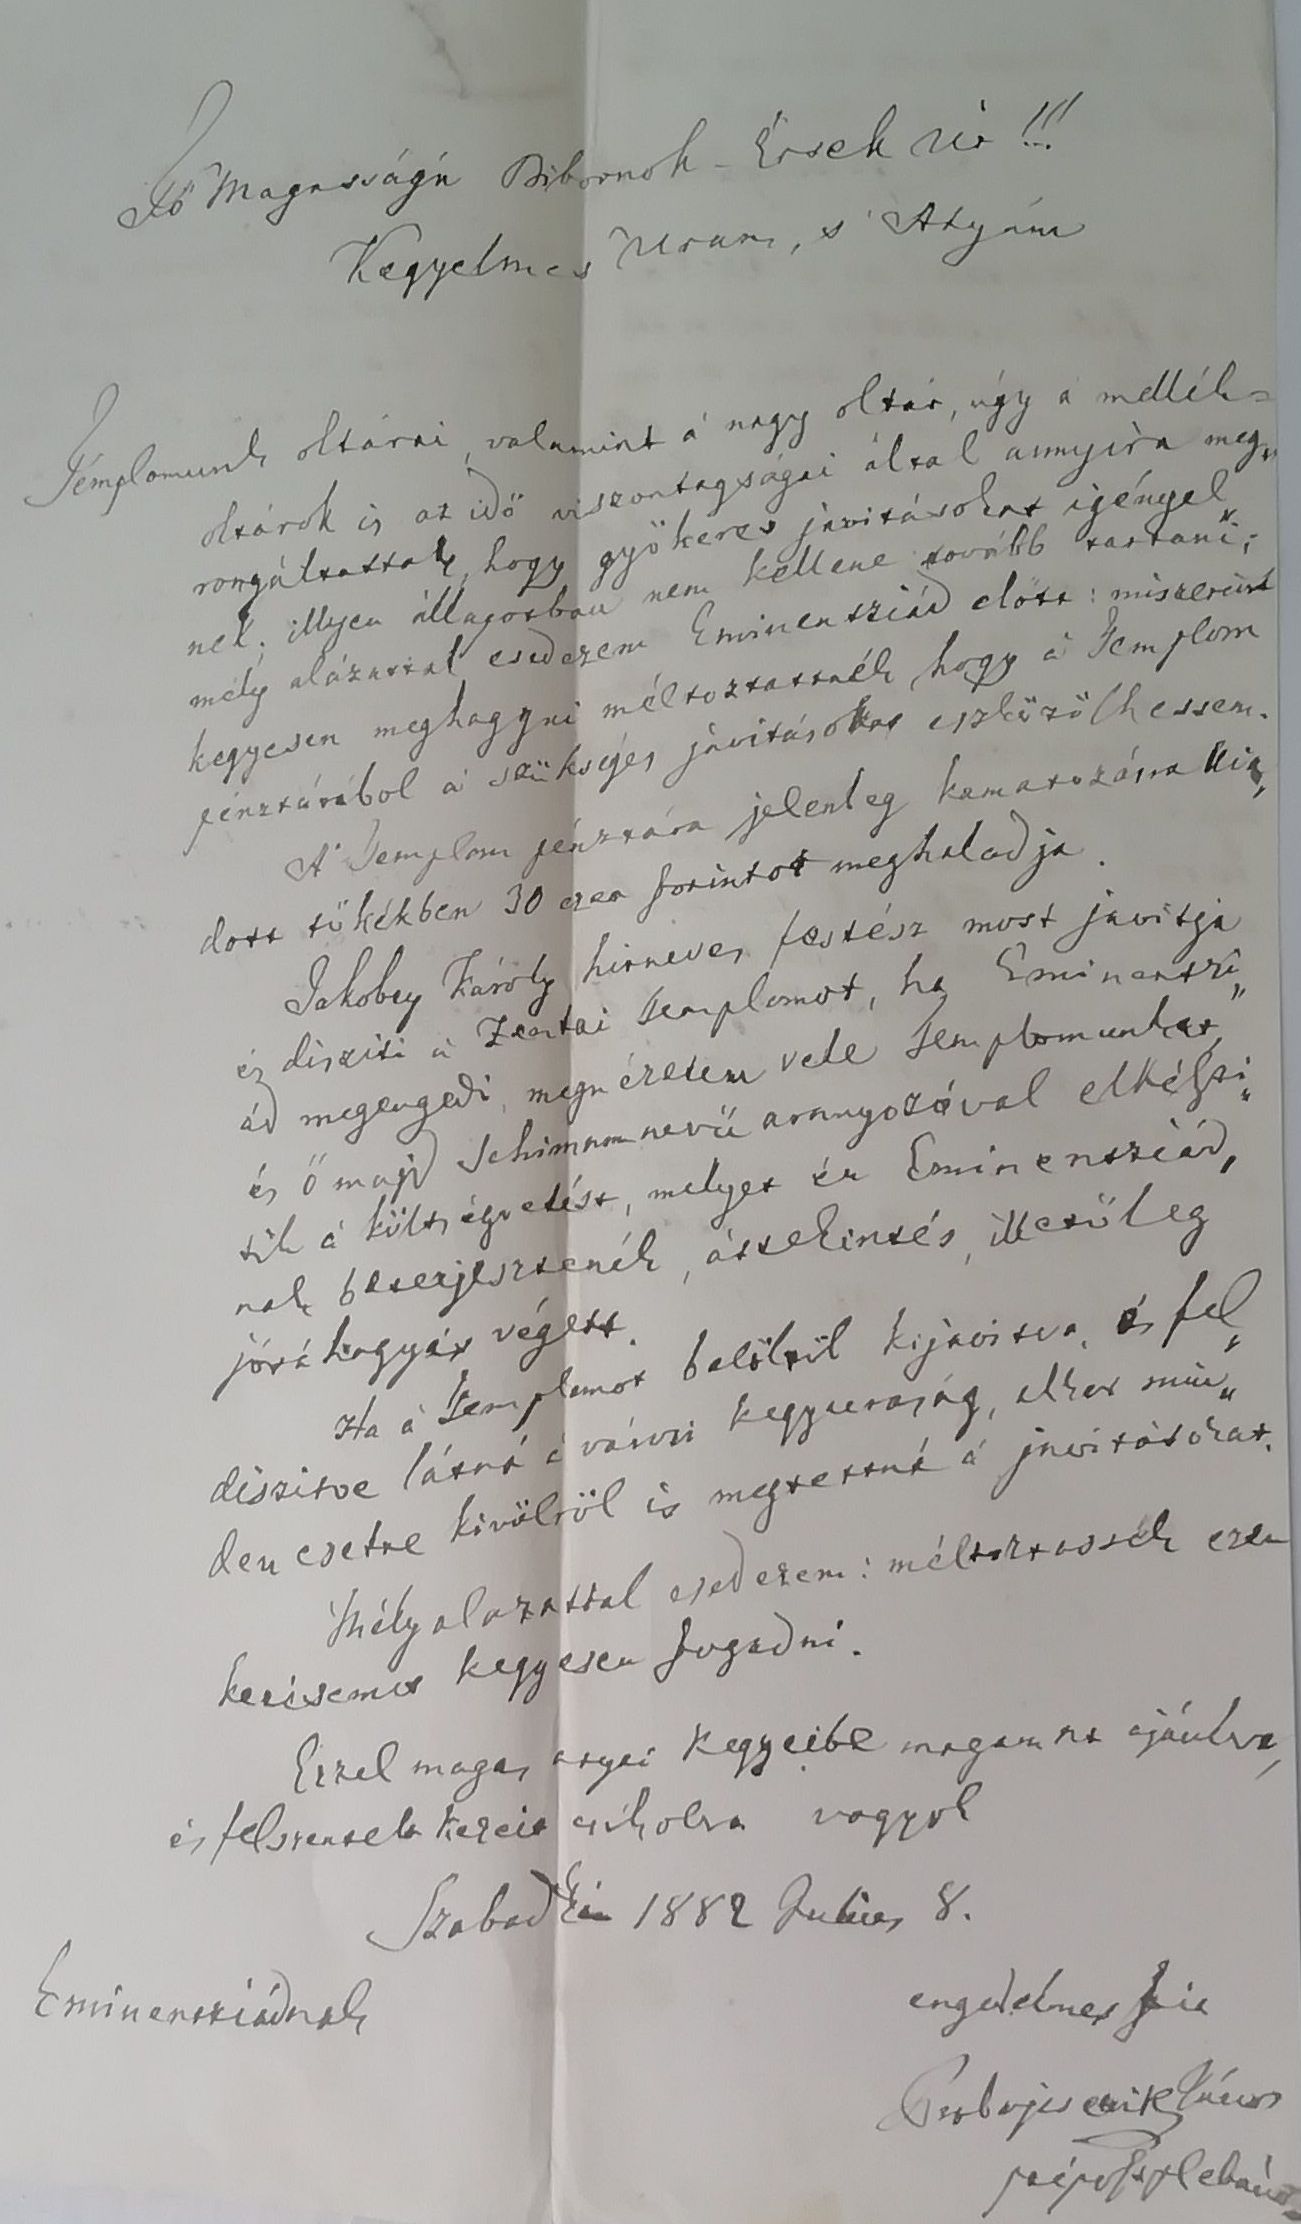 Fő Magasságú Bibornok-Érsek Úr!!!
Kegyelmes Uram, s Atyám
Templomunk oltárai, valamint á nagy oltár, úgy á mellék=
oltárok is az idő viszontagságai által annyira meg„
rongáltattak, hogy gyökeres javitásokat igényel„
nek; illyen állapotban nem kellene tovább tartani;
mély alázattal esedezem Eminentziád előtt: miszerint
kegyesen meghagyni méltóztatnék, hogy á Templom
pénztárából á szükséges javitásokat eszközölhessem.
A' Templom pénztára jelenleg kamatozásra kia„
dott tőkékben 30 ezer forintot meghaladja.
Jakobey Károly hirneves festész most javitja
és disziti á Zentai templomot, ha Eminentzi„
ád megengedi, megnézetem vele templomunkat,
és ő majd Schimann nevű aranyozóval elkészi„
tik á költségvetést, melyet én Eminentziád„
nak beterjesztenék, áttekintés, illetőleg
jóváhagyás végett.
Ha á templomot belölröl kijavitva, és fel„
diszitve látná á városi kegyuraság, akkor min„
den esetre kivülröl is megtetetné á javitásokat.
Mély alázattal esedezem: méltóztassék ezen
kérésemet kegyesen fogadni.
Ezzel magas atyai kegyeibe magamat ajánlva,
és felszentelt kezeit csókolva vagyok
Szabadkán 1882 Julius 8.
Eminentziádnak
engedelmes fia
Probojcsevits János
prépost plebános